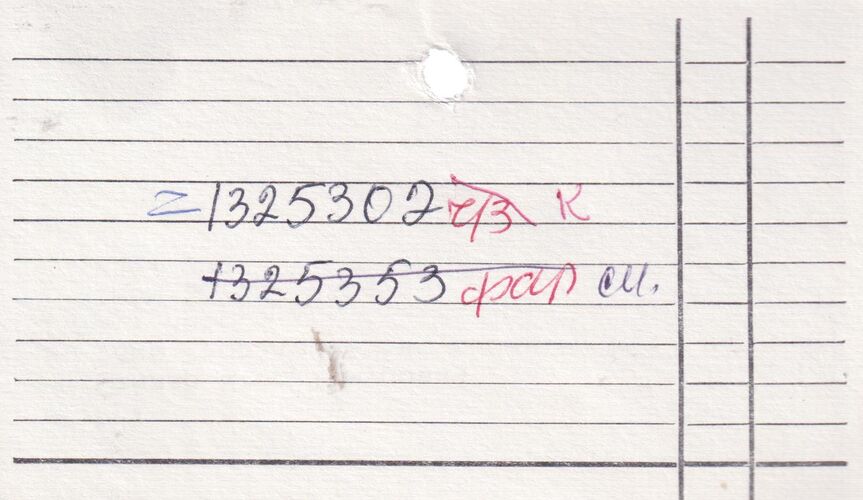 =1325302 чз к
1325353 фал см.